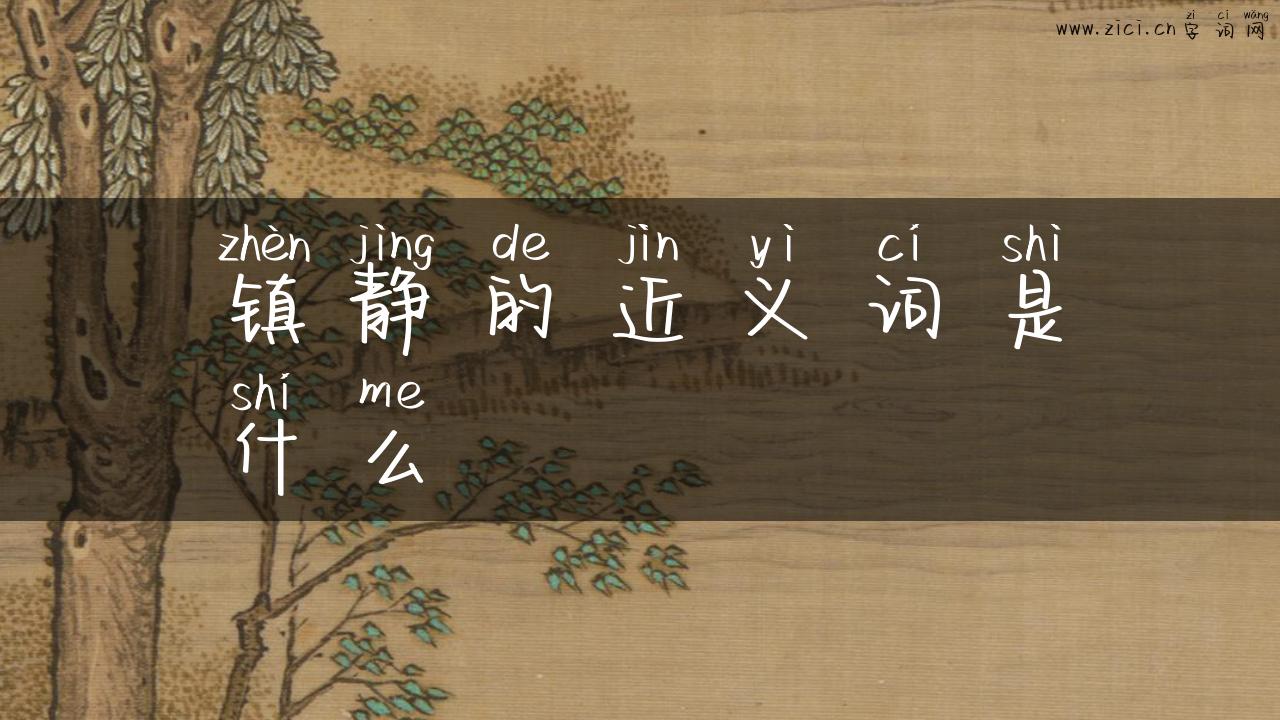 zì cí wǎng
www.zici.cn 字词网
zhèn jìng de jìn yì cí shì
镇静的近义词是
shí me
什么